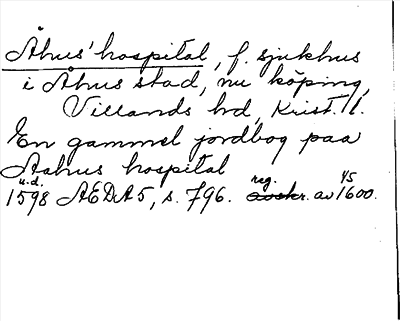 Åhus' hospital, f. sjukhus
i Åhus stad, nu köping,
Villands hd, Krist. l.
En gammel jordbog paa
Aahus hospital
u.d. reg. 45
1598 AEDA5, s. 796. avskr. av 1600.